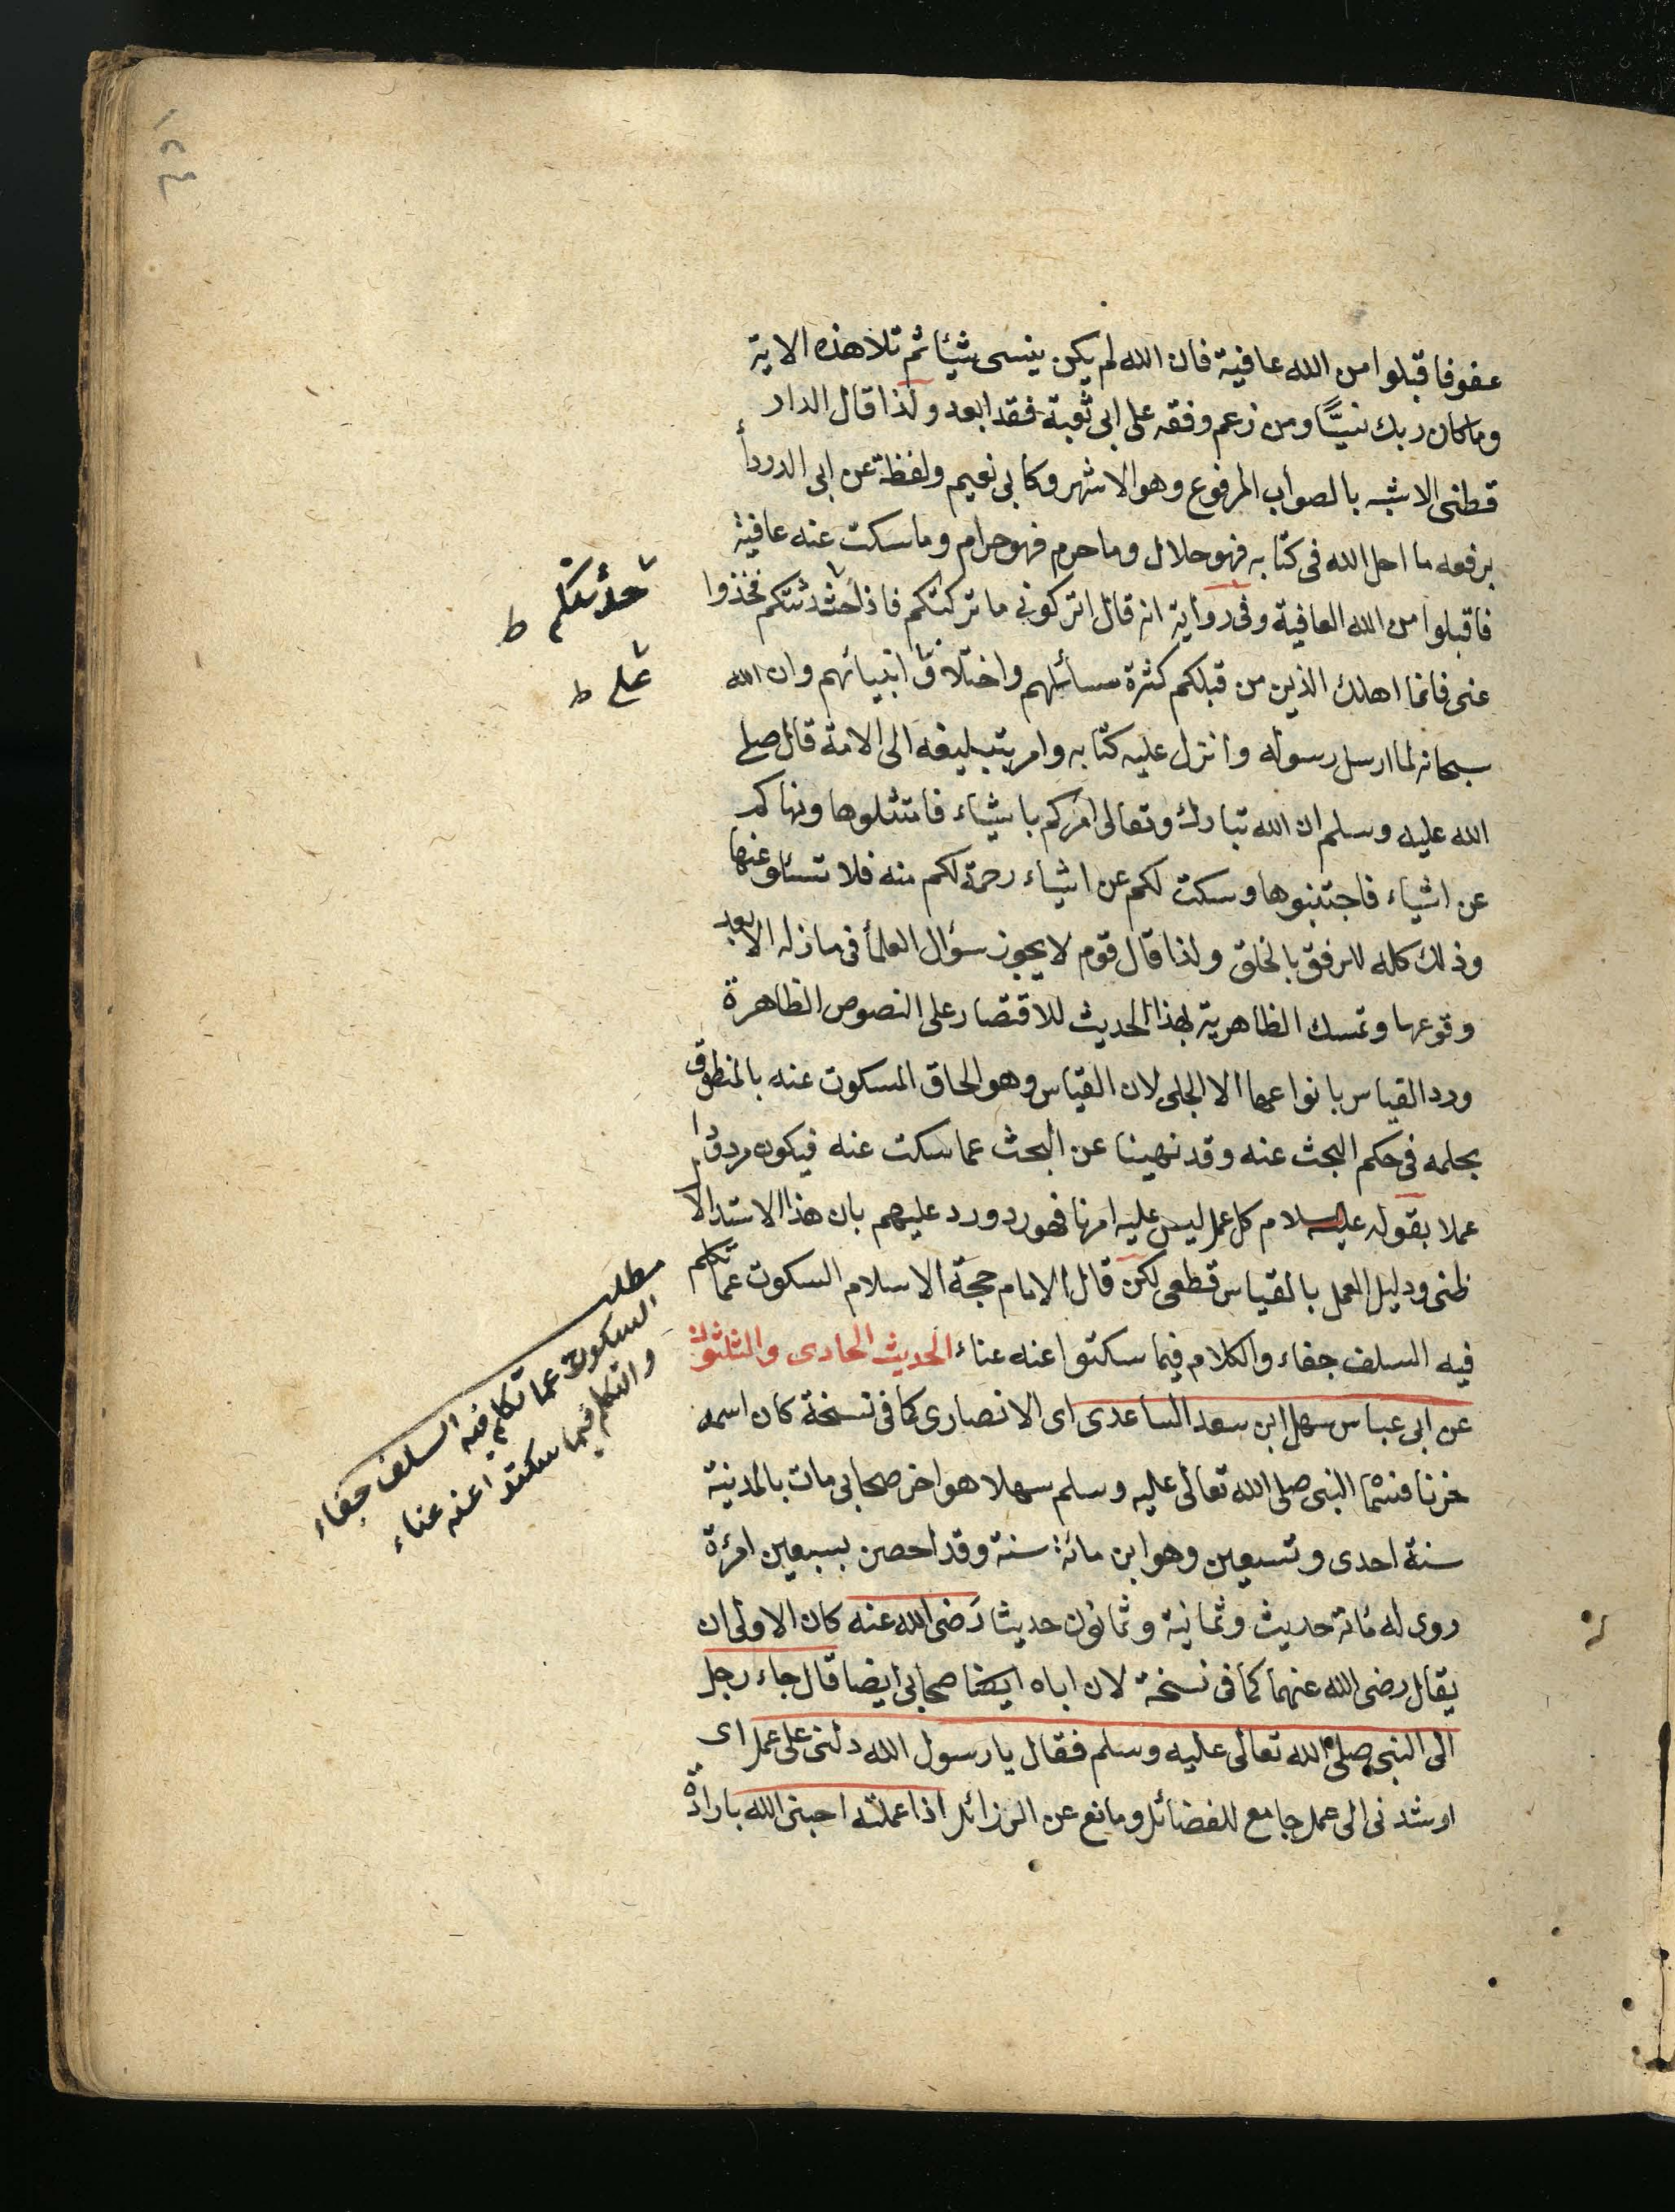 عفو فاقبلوا من الله عافية فان الله لم يكن ينسى شيئا ثم تلا هذه الاية
وما كان ربك نسيًّا ومن زعم وفقه على ابى ثعبة فقد ابعد ولذا قال الدار
قطنى الاشبه بالصواب المرفوع وهو الاشهر وكابى نعيم ولفظة عن ابى الدردأ
برفعه ما احل الله فى كتابه فهو حلال وما حرم فهو حرام وما سكت عنه عافية
فاقبلوا من الله العافية وفى رواية انه قال اتركونى ما تركتكم فاذا حثدثتكم فخذوا
عنى فانما اهلك الذين من قبلكم كثرة سسائلهم واختلاف انبيائهم وان الله
سبحانه لما ارسل رسوله وانزل عليه كتابه وامر بتبليغه الى الامة قال صلى
الله عليه وسلم ان الله تبارك وتعالى امركم باشياء فامتثلوها ونهاكم
عن اشياء فاجتنبوها وسكت لكم عن اشياء رحمة لكم منه فلا تسئلو عنها
وذلك كله للرفق بالخلق ولذا قال قوم لا يجوز سؤال العلمأ فى مازله الا بعد
وقوعها وتمسك الظاهرية بهذا الحديث للاقتصار على النصوص الظاهرة
ورد القياس بانواعها الا الجلى لان القياس وهو الحاق المسكوت عنه بالمنطوق
بحلمه فى حكم البحث عنه وقد نهينا عن البحث عما سكت عنه فيكون مردودا
عملا بقوله عليه السلام كل عمل ليس عليه امرنا فهو رد ورد عليهم بان هذا الاستدلال
ظنى ودليل العمل بالقياس قطعى لكن قال الامام حجة الاسلام السكوت عما تكلم
فيه السلف جفاء والكلام فيما سكتوا عنه عناء الحديث الحادى والثلثون
عن ابى عباس سهل ابن سعد الساعدى اى الانصارى كما فى نسخة كان اسمه
خزنا فسما النبى صلى الله تعالى عليه وسلم سهلا هو اخر صحابى مات بالمدينة
سنة احدى وتسعين وهو ابن مائة سنة وقد احصن بسبعين امرءة
روى له مائة حديث وثمانية وثمانون حديثا رضى الله عنه كان الاولى ان
يقال رضى الله عنهما كما فى نسخة لان اباه ايضا صحابى ايضا قال جاء رجل
الى النبى صلى الله تعالى عليه وسلم فقال يا رسول الله دلنى على عمل اى
ارشدنى الى عمل جامع للفضائل ومانع عن الرزائل اذا عملته احبنى الله بارادة
حدثتكم ط
على ط
مطلب
السكوت عما تكلم فيه السلف جفاء
والتكلم فيما سكتوا عنه عناء